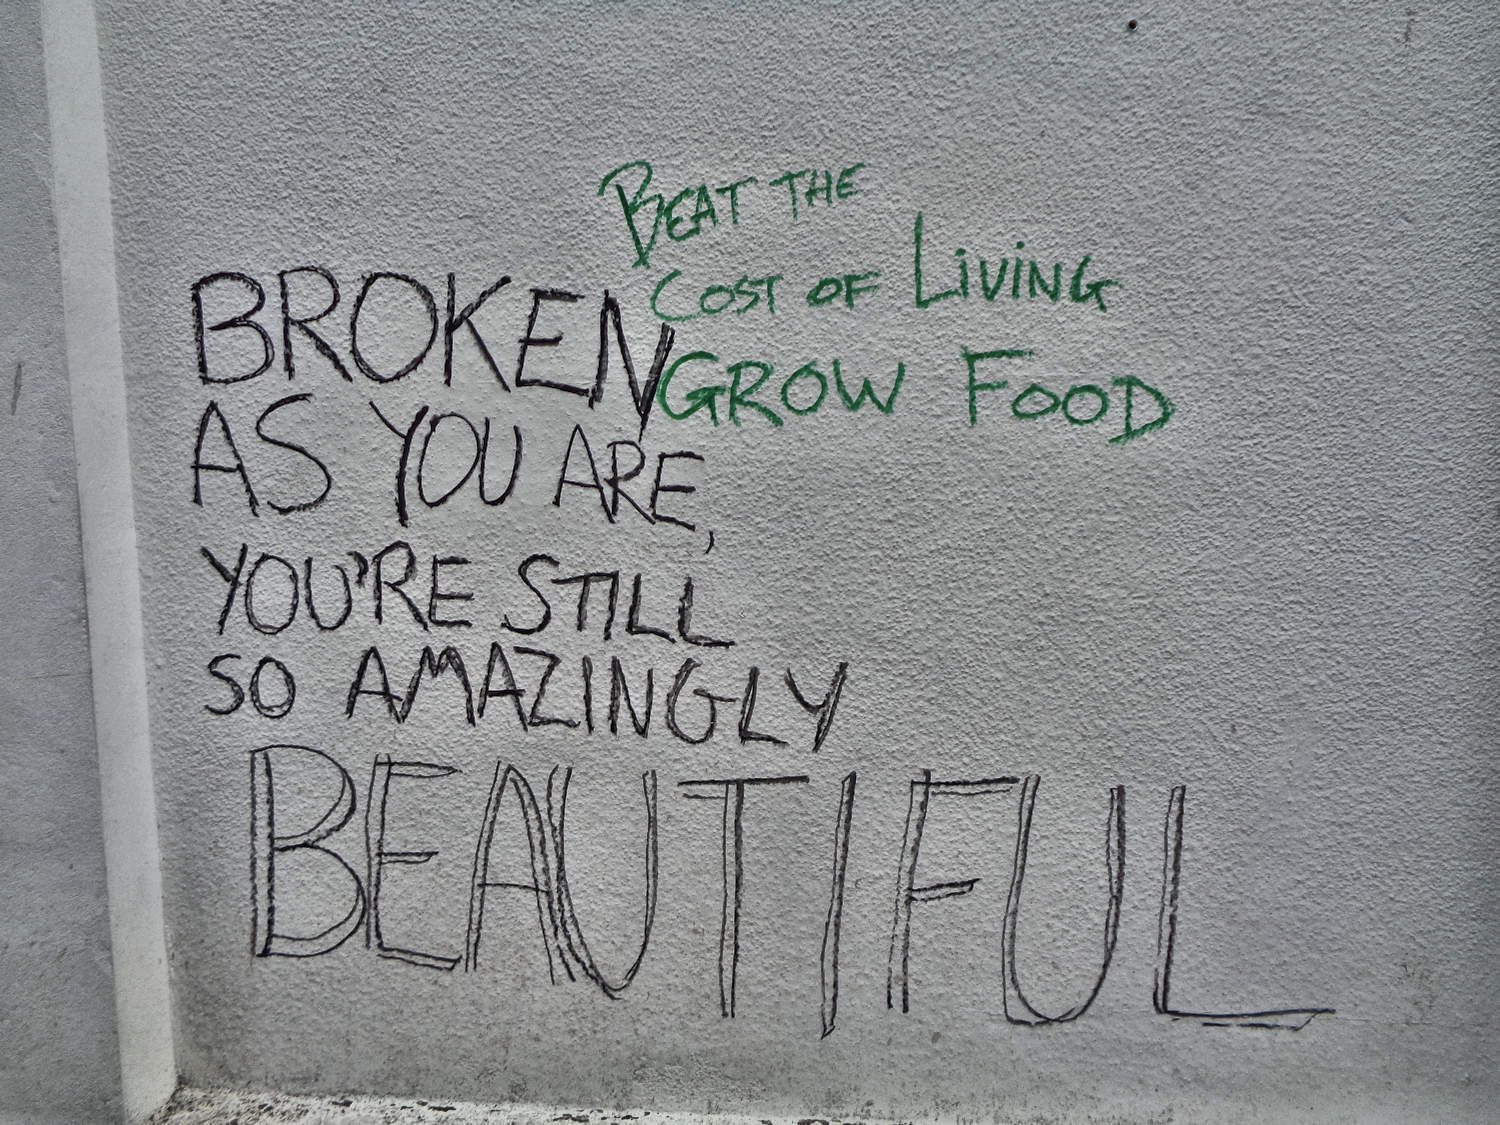 BEAT THE
COST OF LiViNG
GROW FOOD
BROKEN
AS YOU ARE,
YOU'RE STILL
SO AMAZINGLY
BEAUTIFUL